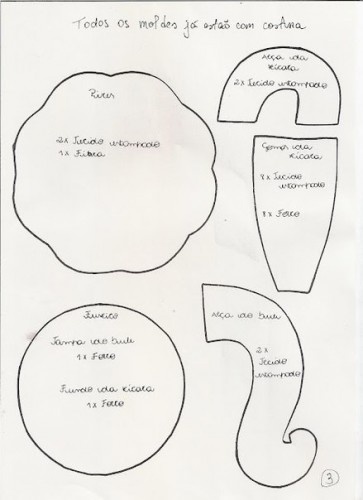 Todos os moldes já estão com costura
Pires
2x Tecido estampado
1x Fibra
Alça da
xícara
2x Tecido estampado
Gomos da
xícara
8x Tecido
estampado
8x Feltro
Fuxico
Tampa do bule
1x Feltro
Fundo da xícara
1x Feltro
Alça do bule
2x
Tecido
estampado
3